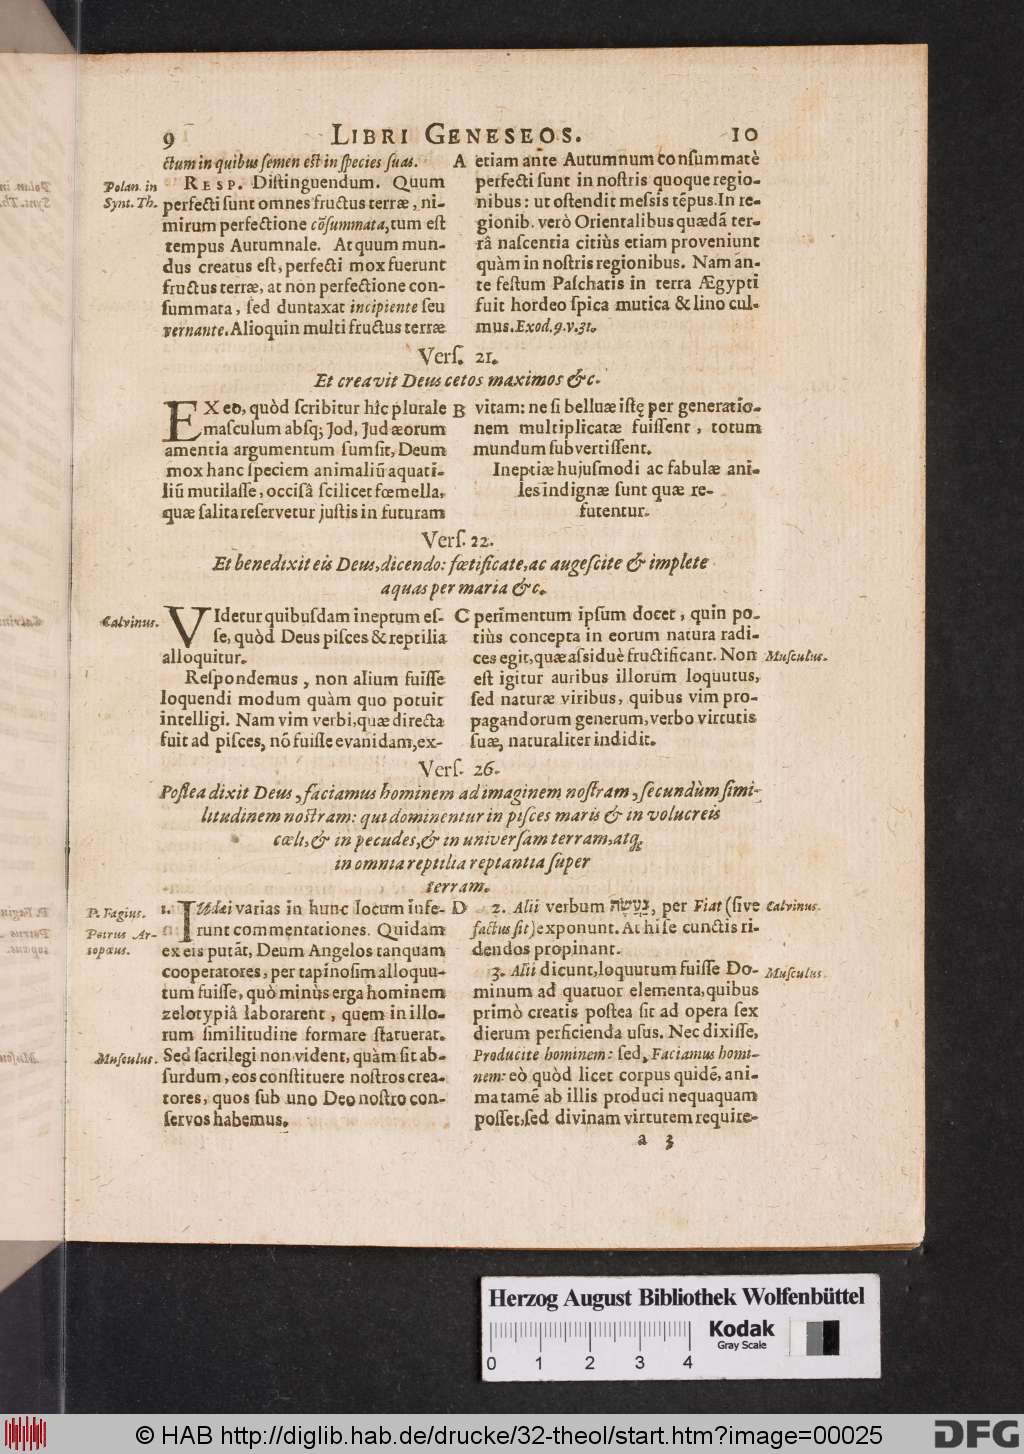 9 LIBRI GENESEOS. 10
ctum in quibus semen est in species suas.
Polan. in
Synt. Th.
RESP. Distinguendum. Quum
perfecti sunt omnes fructus terræ, ni-
mirum perfectione cõsummata, tum est
tempus Autumnale. At quum mun-
dus creatus est, perfecti mox fuerunt
fructus terræ, at non perfectione con-
summata, sed duntaxat incipiente seu
vernante. Alioquin multi fructus terræ
A etiam ante Autumnum consummatè
perfecti sunt in nostris quoque regio-
nibus: ut ostendit messis tẽpus. In re-
gionib. verò Orientalibus quædã ter-
râ nascentia citiùs etiam proveniunt
quàm in nostris regionibus. Nam an-
te festum Paschatis in terra Ægypti
fuit hordeo spica mutica & lino cul-
mus. Exod. 9. v. 31.
Vers. 21.
Et creavit Deus cetos maximos &c.
EX eo, quòd scribitur hîc plurale
masculum absq; Jod, Judæorum
amentia argumentum sumsit, Deum
mox hanc speciem animaliũ aquati-
liũ mutilasse, occisâ scilicet fœmella,
quæ salita reservetur justis in futuram
B vitam: ne si belluæ istę per generatio-
nem multiplicatæ fuissent, totum
mundum subvertissent.
Ineptiæ hujusmodi ac fabulæ ani-
les indignæ sunt quæ re-
futentur.
Vers. 22.
Et benedixit eis Deus, dicendo: fœtificate, ac augescite & implete
aquas per maria &c.
Calvinus.
VIdetur quibusdam ineptum es-
se, quòd Deus pisces & reptilia
alloquitur.
Respondemus, non alium fuisse
loquendi modum quàm quo potuit
intelligi. Nam vim verbi, quæ directa
fuit ad pisces, nõ fuisse evanidam, ex-
C perimentum ipsum docet, quin po-
tiùs concepta in eorum natura radi-
ces egit, quæ assiduè fructificant. Non
Musculus.
est igitur auribus illorum loquutus,
sed naturæ viribus, quibus vim pro-
pagandorum generum, verbo virtutis
suæ, naturaliter indidit.
Vers. 26.
Postea dixit Deus, faciamus hominem ad imaginem nostram, secundùm simi-
litudinem nostram: qui dominentur in pisces maris & in volucreis
cœli, & in pecudes, & in universam terram, atq;
in omnia reptilia reptantia super
terram.
P. Fagius.
Petrus Ar-
topœus.
1. IUdæi varias in hunc locum infe-
runt commentationes. Quidam
ex eis putãt, Deum Angelos tanquam
cooperatores, per tapinosim alloquu-
tum fuisse, quò minùs erga hominem
zelotypiâ laborarent, quem in illo-
rum similitudine formare statuerat.
Musculus.
Sed sacrilegi non vident, quàm sit ab-
surdum, eos constituere nostros crea-
tores, quos sub uno Deo nostro con-
servos habemus.
D 2. Alii verbum נַעֲשֶׂה, per Fiat (sive
Calvinus.
factus sit) exponunt. At hi se cunctis ri-
dendos propinant.
3. Alii dicunt, loquutum fuisse Do-
Musculus.
minum ad quatuor elementa, quibus
primò creatis postea sit ad opera sex
dierum perficienda usus. Nec dixisse,
Producite hominem: sed, Faciamus homi-
nem: eò quòd licet corpus quidẽ, ani-
ma tamẽ ab illis produci nequaquam
posset, sed divinam virtutem require-
a 3
Herzog August Bibliothek Wolfenbüttel
Kodak
Gray Scale
0 1 2 3 4
© HAB http://diglib.hab.de/drucke/32-theol/start.htm?image=00025
DFG